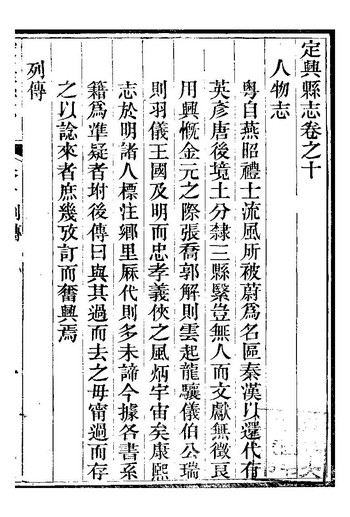 定興縣志卷之十
人物志
粵自燕昭禮士流風所被蔚爲名區秦漢以還代有
英彥唐後境土分隸三縣繄豈無人而文獻無徵良
用興慨金元之際張喬郭解則雲起龍驤儀伯公瑞
則羽儀王國及明而忠孝義俠之風炳宇宙矣康熙
志於明諸人標注鄉里厤代則多未諦今據各書系
籍爲準疑者坿後傳曰與其過而去之毋甯過而存
之以諗來者庶幾攷訂而奮興焉
列傳